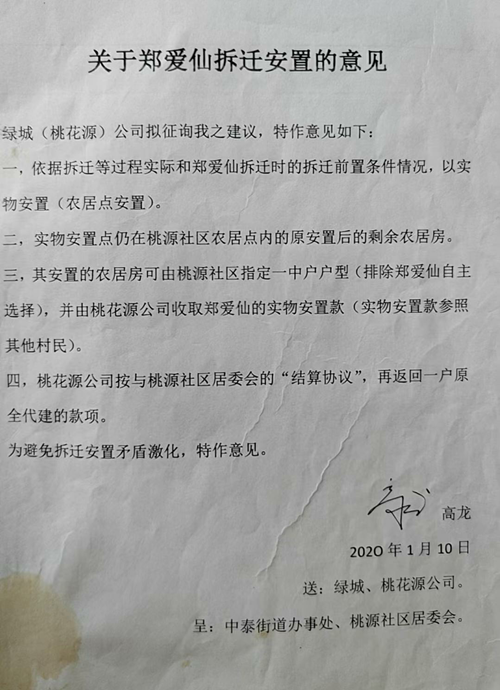 关于郑爱仙拆迁安置的意见
绿城（桃花源）公司拟征询我之建议，特作意见如下：
一，依据拆迁等过程实际和郑爱仙拆迁时的拆迁前置条件情况，以实
物安置（农居点安置）。
二，实物安置点仍在桃源社区农居点内的原安置后的剩余农居房。
三，其安置的农居房可由桃源社区指定一中户户型（排除郑爱仙自主
选择），并由桃花源公司收取郑爱仙的实物安置款（实物安置款参照
其他村民）。
四，桃花源公司按与桃源社区居委会的“结算协议”，再返回一户原
全代建的款项。
为避免拆迁安置矛盾激化，特作意见。
高龙 高龙
202O 年 1 月 10 日
送：绿城、桃花源公司。
呈：中泰街道办事处、桃源社区居委会。